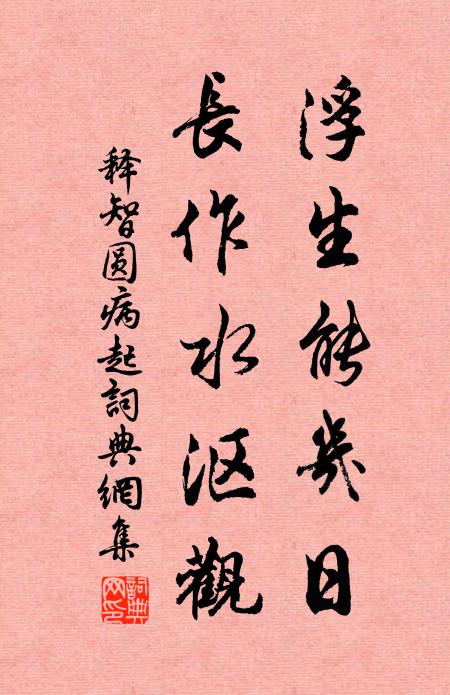 浮生能幾日
長作水沤觀
释智圆病起詞典網集
詞典
网印